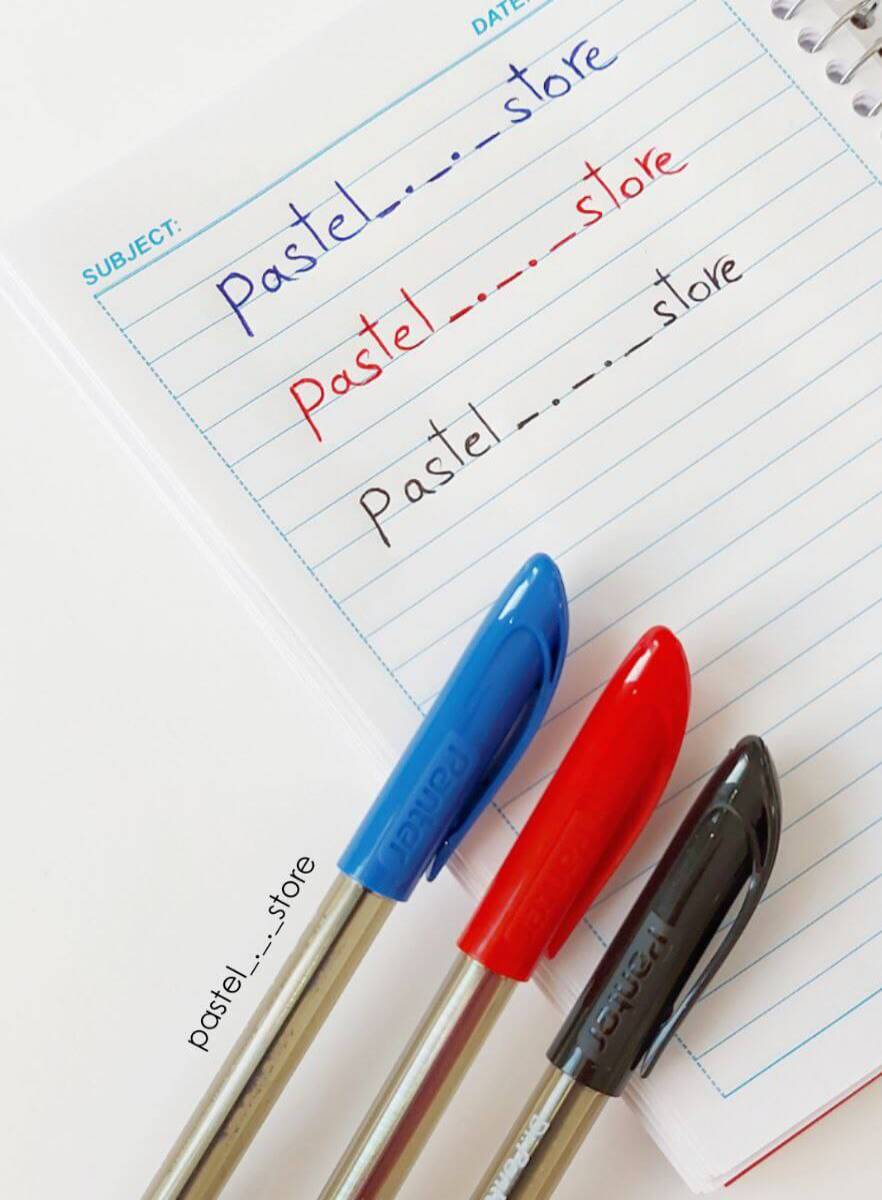 DATE:
SUBJECT:
pastel_._._store
pastel_._._store
pastel_._._store
Panter
Panter
Panter
pastel_._._store